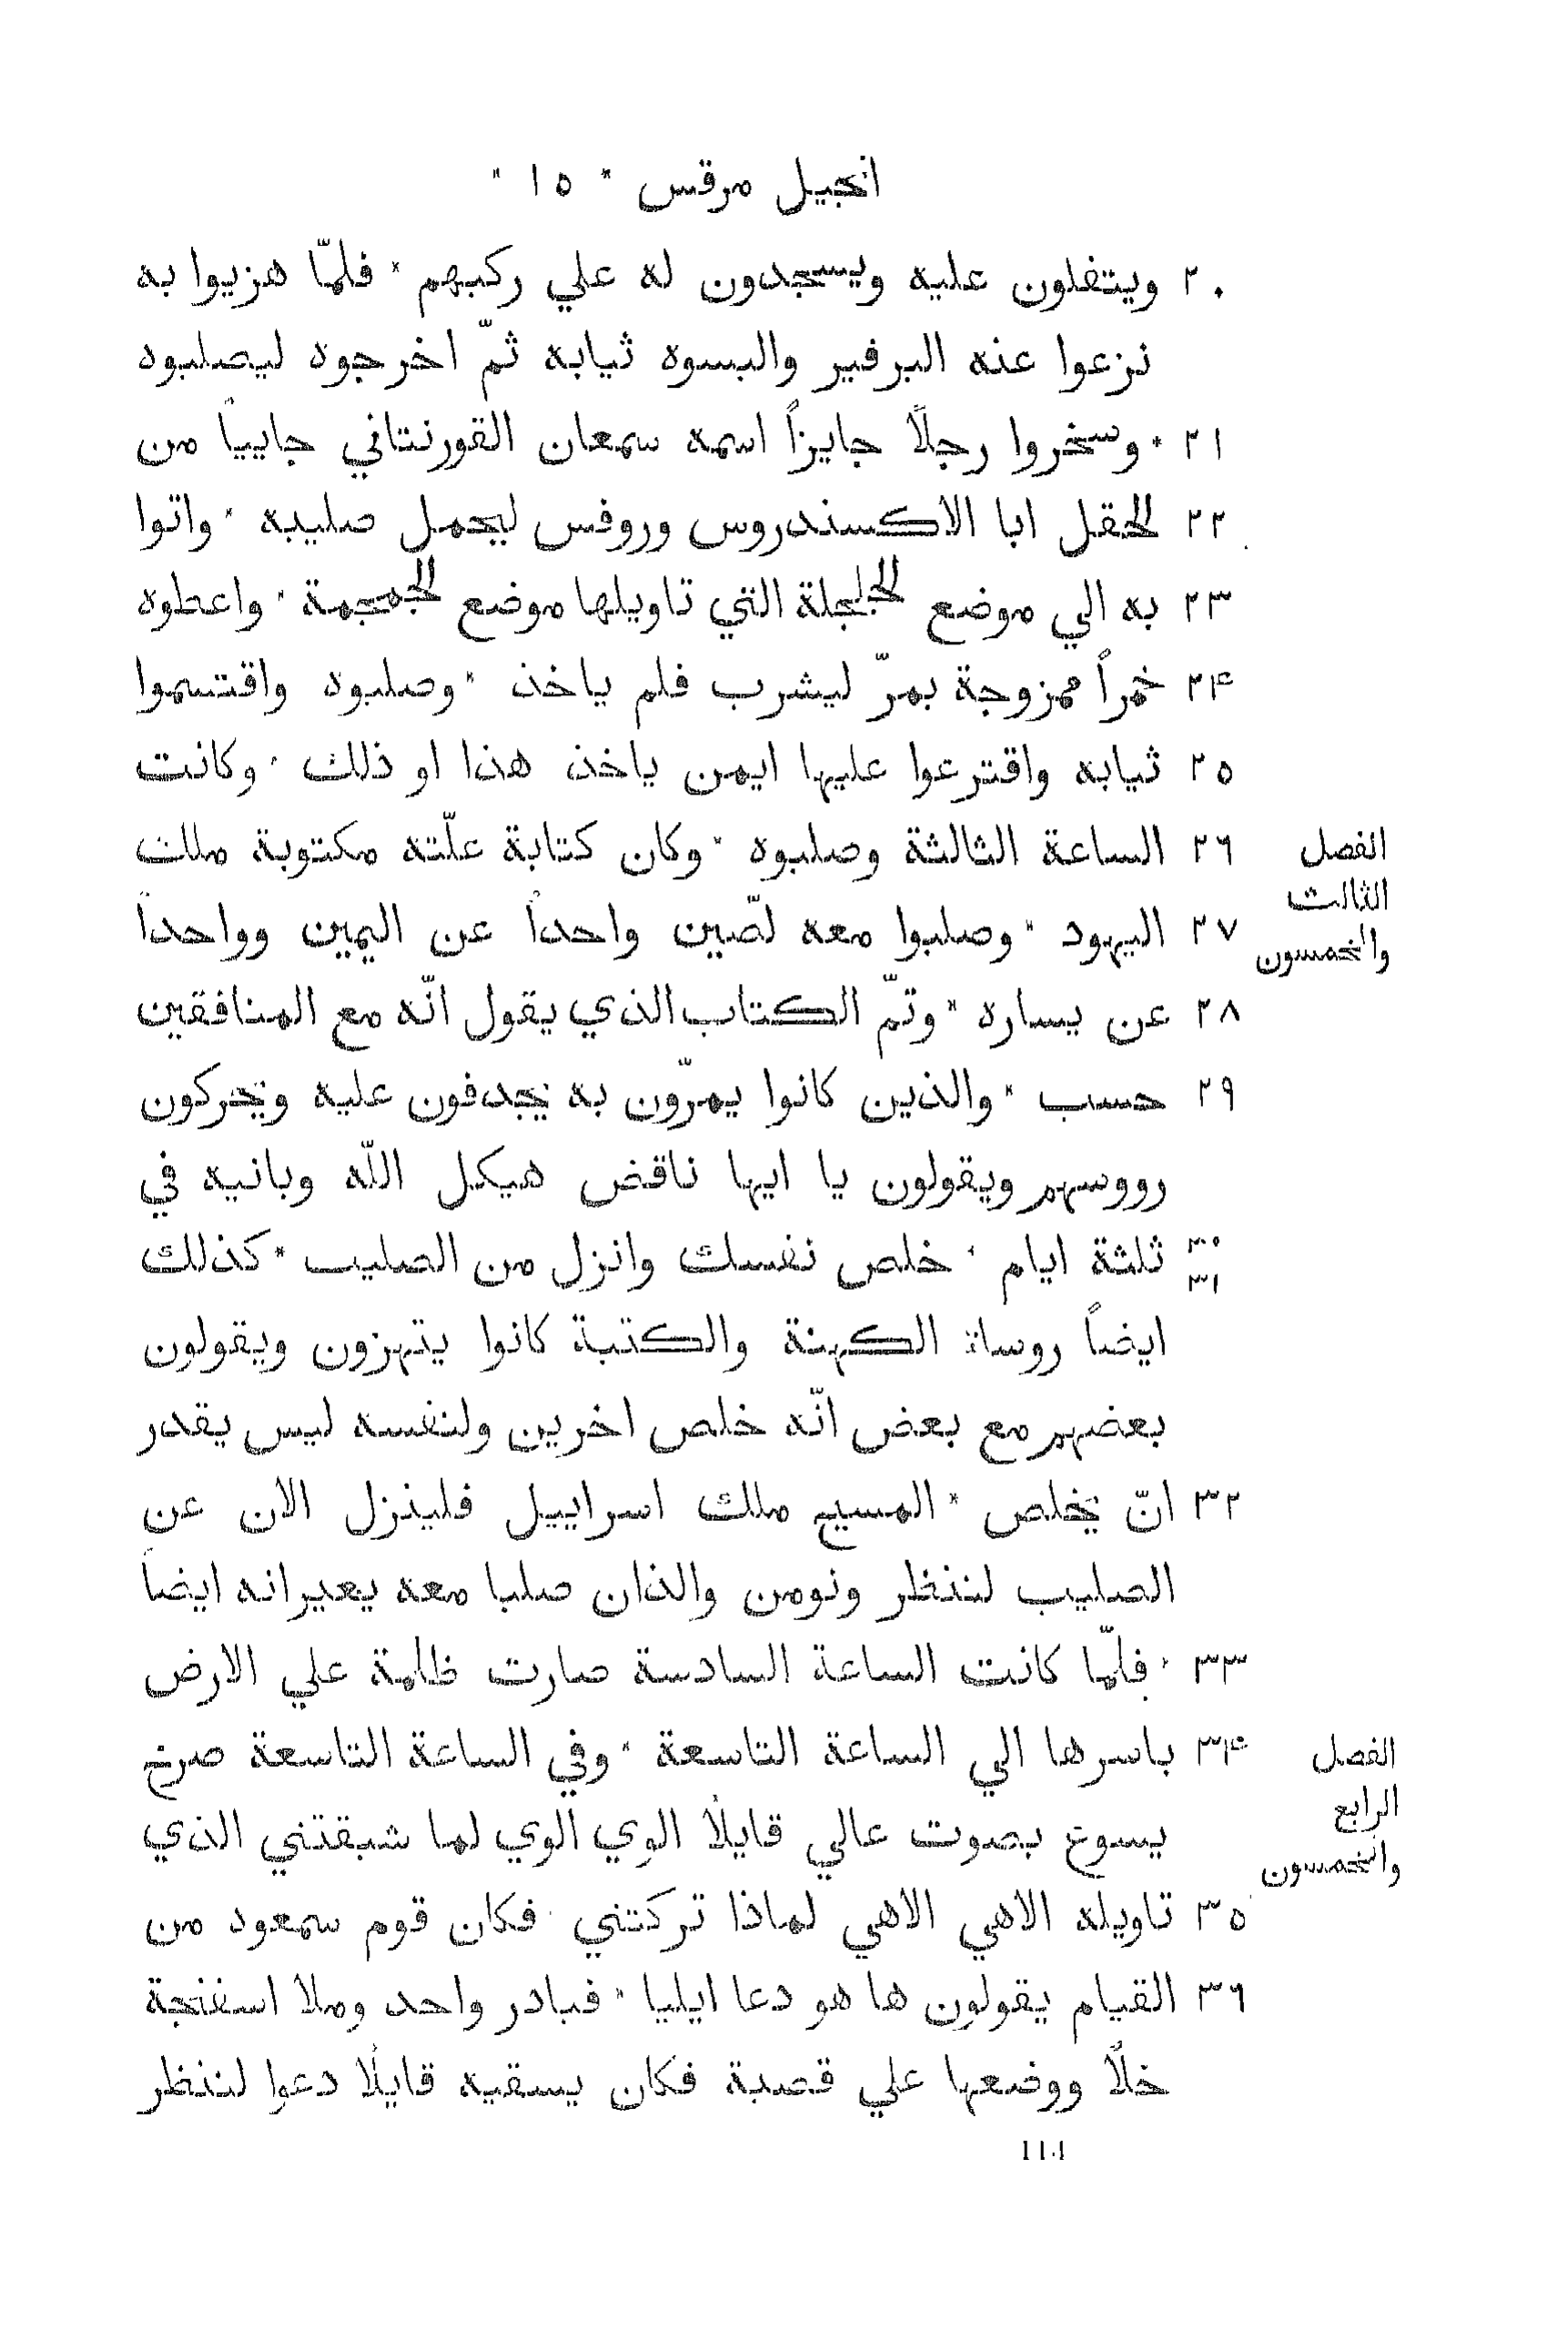 انجيل مرقس * ١٥ *
٢٠ ويتفلون عليه ويسجدون له علي ركبهم * فلمّا هزيوا به
نزعوا عنه البرفير والبسوه ثيابه ثمّ اخرجوه ليصلبوه
٢١ * وسخروا رجلاً جايزاً اسمه سمعان القورنتاني جايياً من
٢٢ الحقل ابا الاكسندروس وروفس ليحمل صليبه * واتوا
٢٣ به الي موضع الجلجلة التي تاويلها موضع الجمجمة * واعطوه
٢۴ خمراً ممزوجة بمرّ ليشرب فلم ياخذ * وصلبوه واقتسموا
٢٥ ثيابه واقترعوا عليها ايمن ياخذ هذا او ذلك * وكانت
٢٦ الساعة الثالثة وصلبوه * وكان كتابة علّته مكتوبة ملك
الفصل الثالث والخمسون
٢٧ اليهود * وصلبوا معه لصّين واحداً عن اليمين وواحداً
٢٨ عن يساره * وتمّ الكتاب الذي يقول انّه مع المنافقين
٢٩ حسب * والذين كانوا يمرّون به يجدفون عليه ويحركون
رووسهم ويقولون يا ايها ناقض هيكل اللّه وبانيه في
٣٠ ٣١ ثلثة ايام * خلص نفسك وانزل من الصليب * كذلك
ايضاً روساة الكهنة والكتبة كانوا يتهزون ويقولون
بعضهم مع بعض انّه خلص اخرين ولنفسه ليس يقدر
٣٢ انّ يخلص * المسيح ملك اسراييل فلينزل الان عن
الصليب لننظر ونومن والذان صلبا معه يعيرانه ايضاً
٣٣ * فلمّا كانت الساعة السادسة صارت ظلمة علي الارض
٣۴ باسرها الي الساعة التاسعة * وفي الساعة التاسعة صرخ
الفصل الرابع والخمسون
يسوع بصوت عالي قايلاً الوي الوي لما شبقتني الذي
٣٥ تاويله الاهي الاهي لماذا تركتني * فكان قوم سمعود من
٣٦ القيام يقولون ها هو دعا ايليا * فبادر واحد وملا اسفنجة
خلاً ووضعها علي قصبة فكان يسقيه قايلاً دعوا لننظر